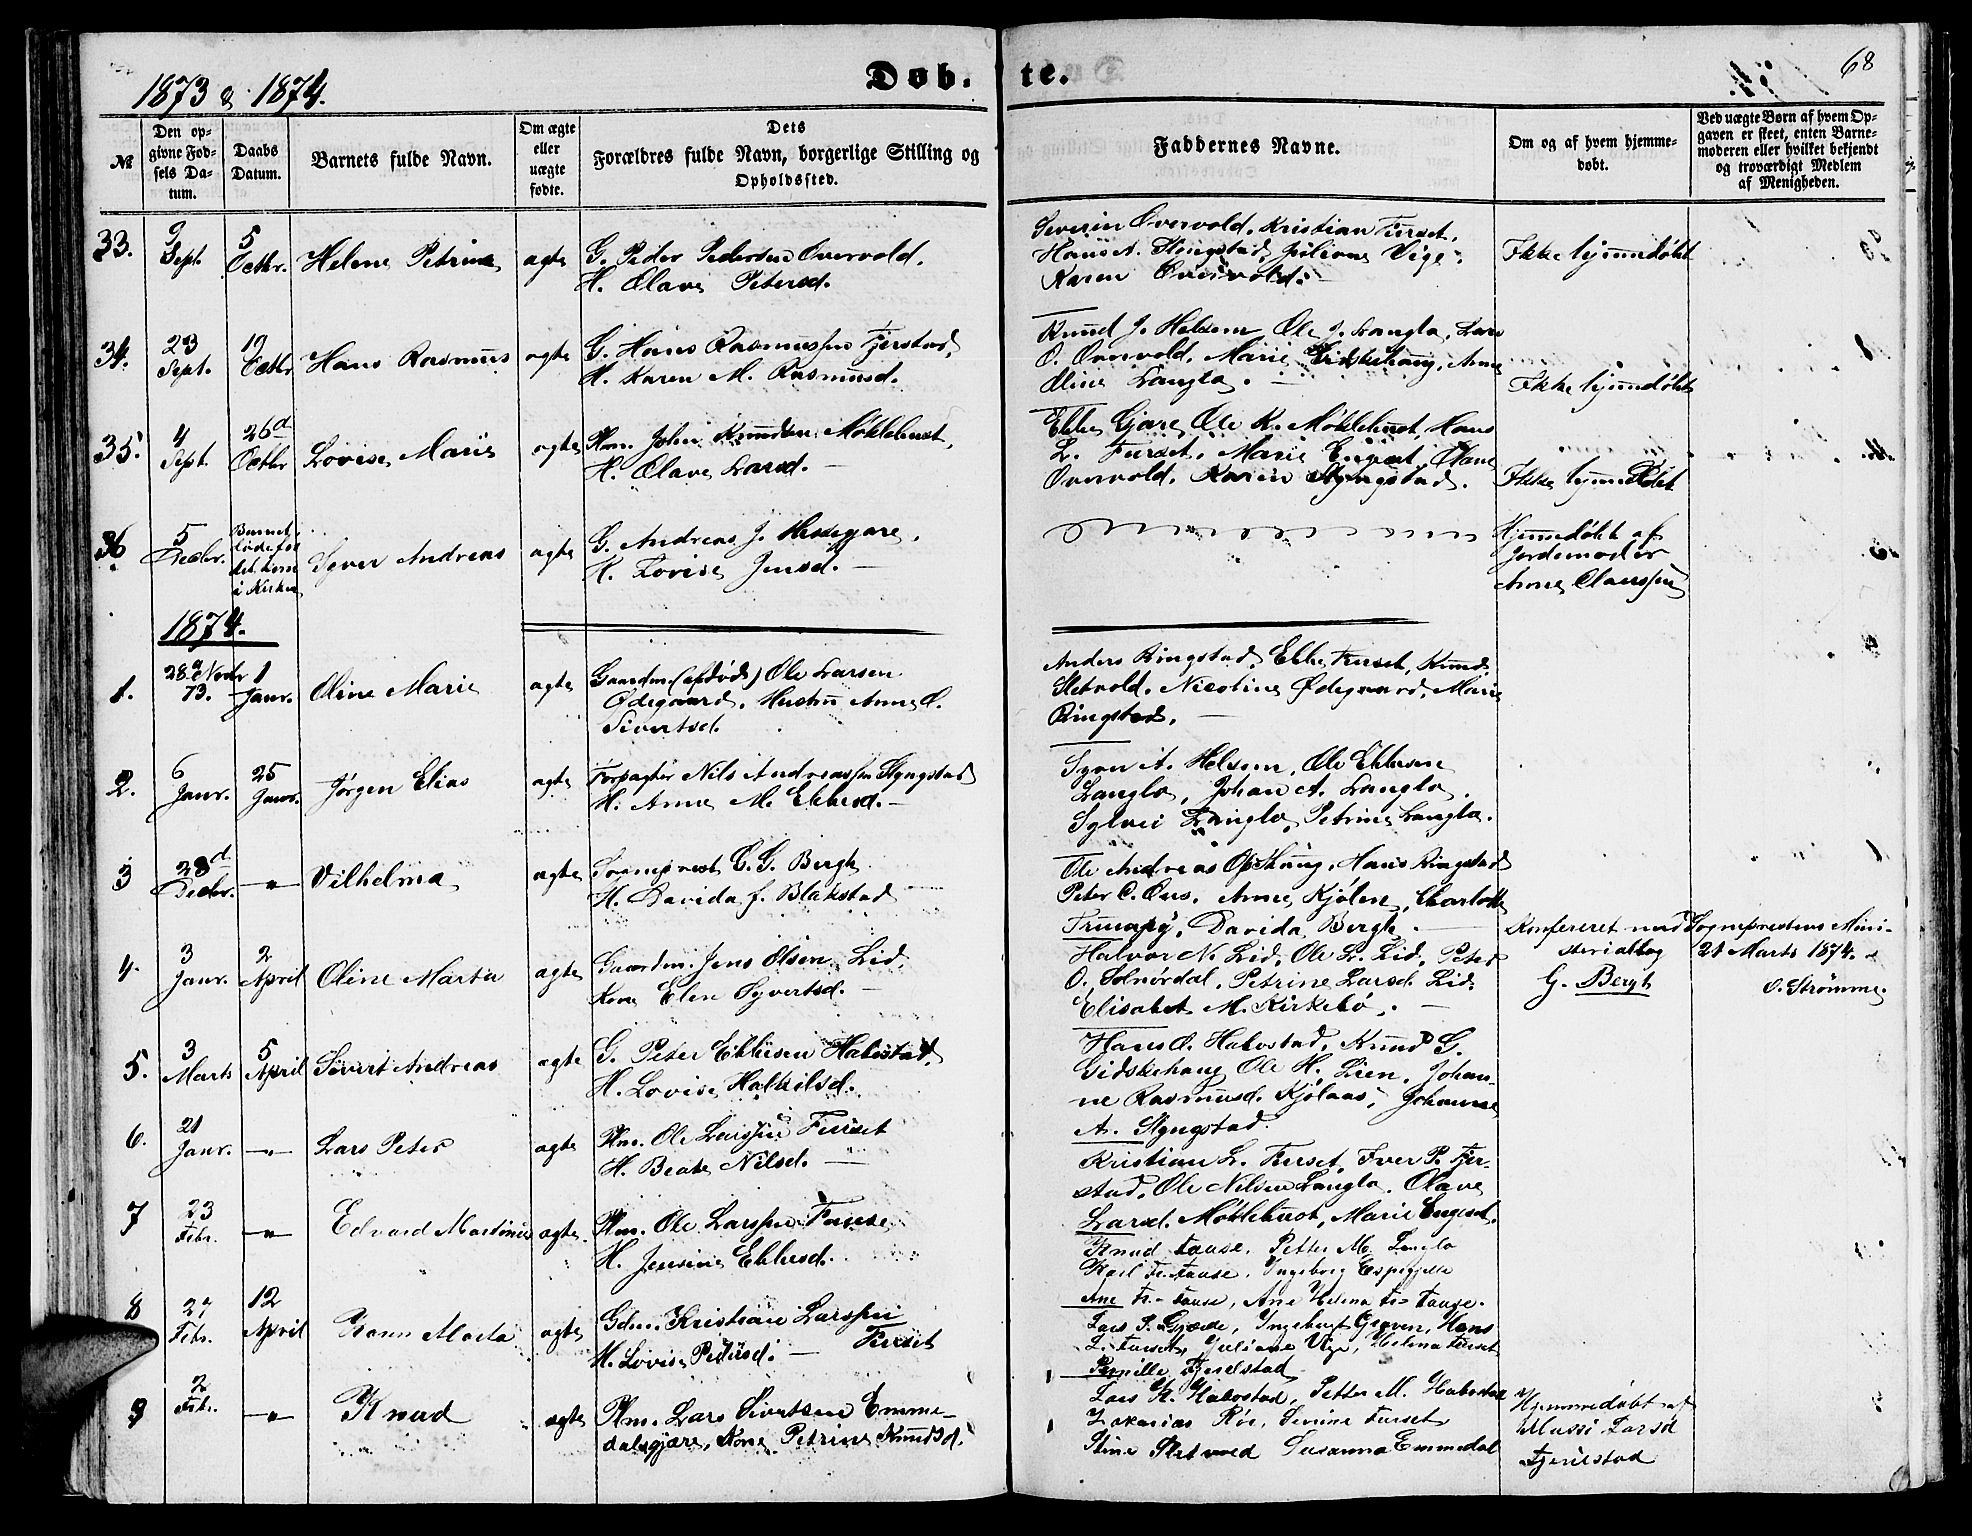 68
1873 & 1874.
Døb-
te.
№
Den op-
givne Fød-
sels Da-
tum.
Daabs
Datum.
Barnets fulde Navn.
Om ægte
eller
uægte
fødte.
Dets
Forældres fulde Navn, borgerlige Stilling og
Opholdssted.
Faddernes Navne.
Om og af hvem hjemme-
døbt.
Ved uægte Børn af hvem Op-
gaven er skeet, enten Barne-
moderen eller hvilket bekjendt
og troværdigt Medlem
af Menigheden.
33.
9
Sept.
5
Octbr.
Helene Petrine
ægte
G. Peder Pedersen Overvold.
H. Olave Petersd.
Severin Overvold, Kristian Furset,
Hans A. Styngstad, Juliane Vige,
Karen Overvold.
Ikke hjemmedøbt
34.
23
Sept.
19
Octbr
Hans Rasmus
ægte
G. Hans Rasmussen Fjerstad,
H. Karen M. Rasmusd.
Knud J. Helsem, Ole J. Langlo, Lars
O. Overvold, Marie Gidskehaug, Anne
Oline Langlo.
Ikke hjemmedøbt
35.
4
Sept.
26d
Octbr
Lovise Marie
ægte
Pm. John Knudsen Møklebust,
H. Olave Larsd.
Ebbe Gjære, Ole K. Møklebust, Hans
L. Furset, Marie Engeset, Olave
Overvold, Karen Styngstad.
Ikke hjemmedøbt
36
5
Decbr.
Barnet
døde før
det kom
i Kirken
Syver Andreas
ægte
G. Andreas J. Hessegjære,
H. Lovise Jensd.
Hjemmedøbt af
Jordemoder
Anne Claussen
1874.
1.
28d Novbr
73.
1
Janr.
Oline Marie
ægte
Gaardm. (afdød) Ole Larsen
Ødegaard, Hustru Anne O.
Sivertsd.
Anders Ringstad, Ebbe Furset, Knud
Sletvold, Nicoline Ødegaard, Marie
Ringstad.
2.
6
Janr.
25
Janr.
Jørgen Elias
ægte
Forpagter Nils Andreassen Styngstad
H. Anne M. Ebbesd.
Syver A. Helsem, Ole Ebbesen
Langlo, Johan A. Langlo,
Sylvei Langlo, Petrine Langlo.
3
28d
Decbr.
"
Vilhelma
ægte
Sogneprest C. G. Bergh
H. Davida f. Blakstad
Ole Andreas Opskaug, Hans Ringstad
Peter C. Aas, Anne Kjølen, Charlotte
Trumpy, Davida Bergh.
4.
3
Janr.
2
April
Oline Marta
ægte
Gaardm. Jens Olsen Lid,
Kone Elen Syvertsd.
Halvor N. Lid, Ole L. Lid, Peter
O. Solnørdal, Petrine Larsd. Lid,
Elisabet M. Kirkebø.
Konfereret med Sognepresten Mini-
sterialbog 21 Marts 1874.
G. Bergh
O. Strømme.
5.
3
Marts
5
April
Sivert Andreas
ægte
G. Peter Ebbesen Habostad,
H. Lovise Halkilsd.
Hans O. Habostad, Knud G.
Gidskehaug, Ole H. Lien, Johan-
ne Rasmusd. Kjølaas, Johanne
A. Styngstad.
6.
21
Janr.
"
Lars Peter
ægte
Pm. Ole Larssen Furset
H. Beate Nilsd.
Kristian L. Furset, Iver P. Fjer-
stad, Ole Nilsen Langlo, Olave
Larsd. Møklebust, Marie Engeset.
7
23
Febr.
"
Edvard Martinus
ægte
Pm. Ole Larssen Fause
H. Jensine Ebbesd.
Knud Fause, Petter M. Langlo
Karl Fr. Fause, Ingeborg Espegjelle
Ane Fr. Fause, Ane Helena Fr. Fause.
8
27
Febr.
12
April
Hanna Marta
ægte
Gdm. Kristian Larssen
Furset
H. Lovise Petersd.
Lars P. Gjære, Ingebrigt Graven, Hans
L. Furset, Juliane Vige, Helena Furset
Pernille Fjerstad
9
2
Febr.
"
Knud
ægte
Pm. Lars Sivertsen Emme-
dalsgjære, Kone Petrine Knudsd.
Lars K. Habostad, Petter M. Habostad
Zakarias Røe, Senine Furset
Stine Sletvold, Susanna Emmedal
Hjemmedøbt af
Massi Larsd
Fjerstad